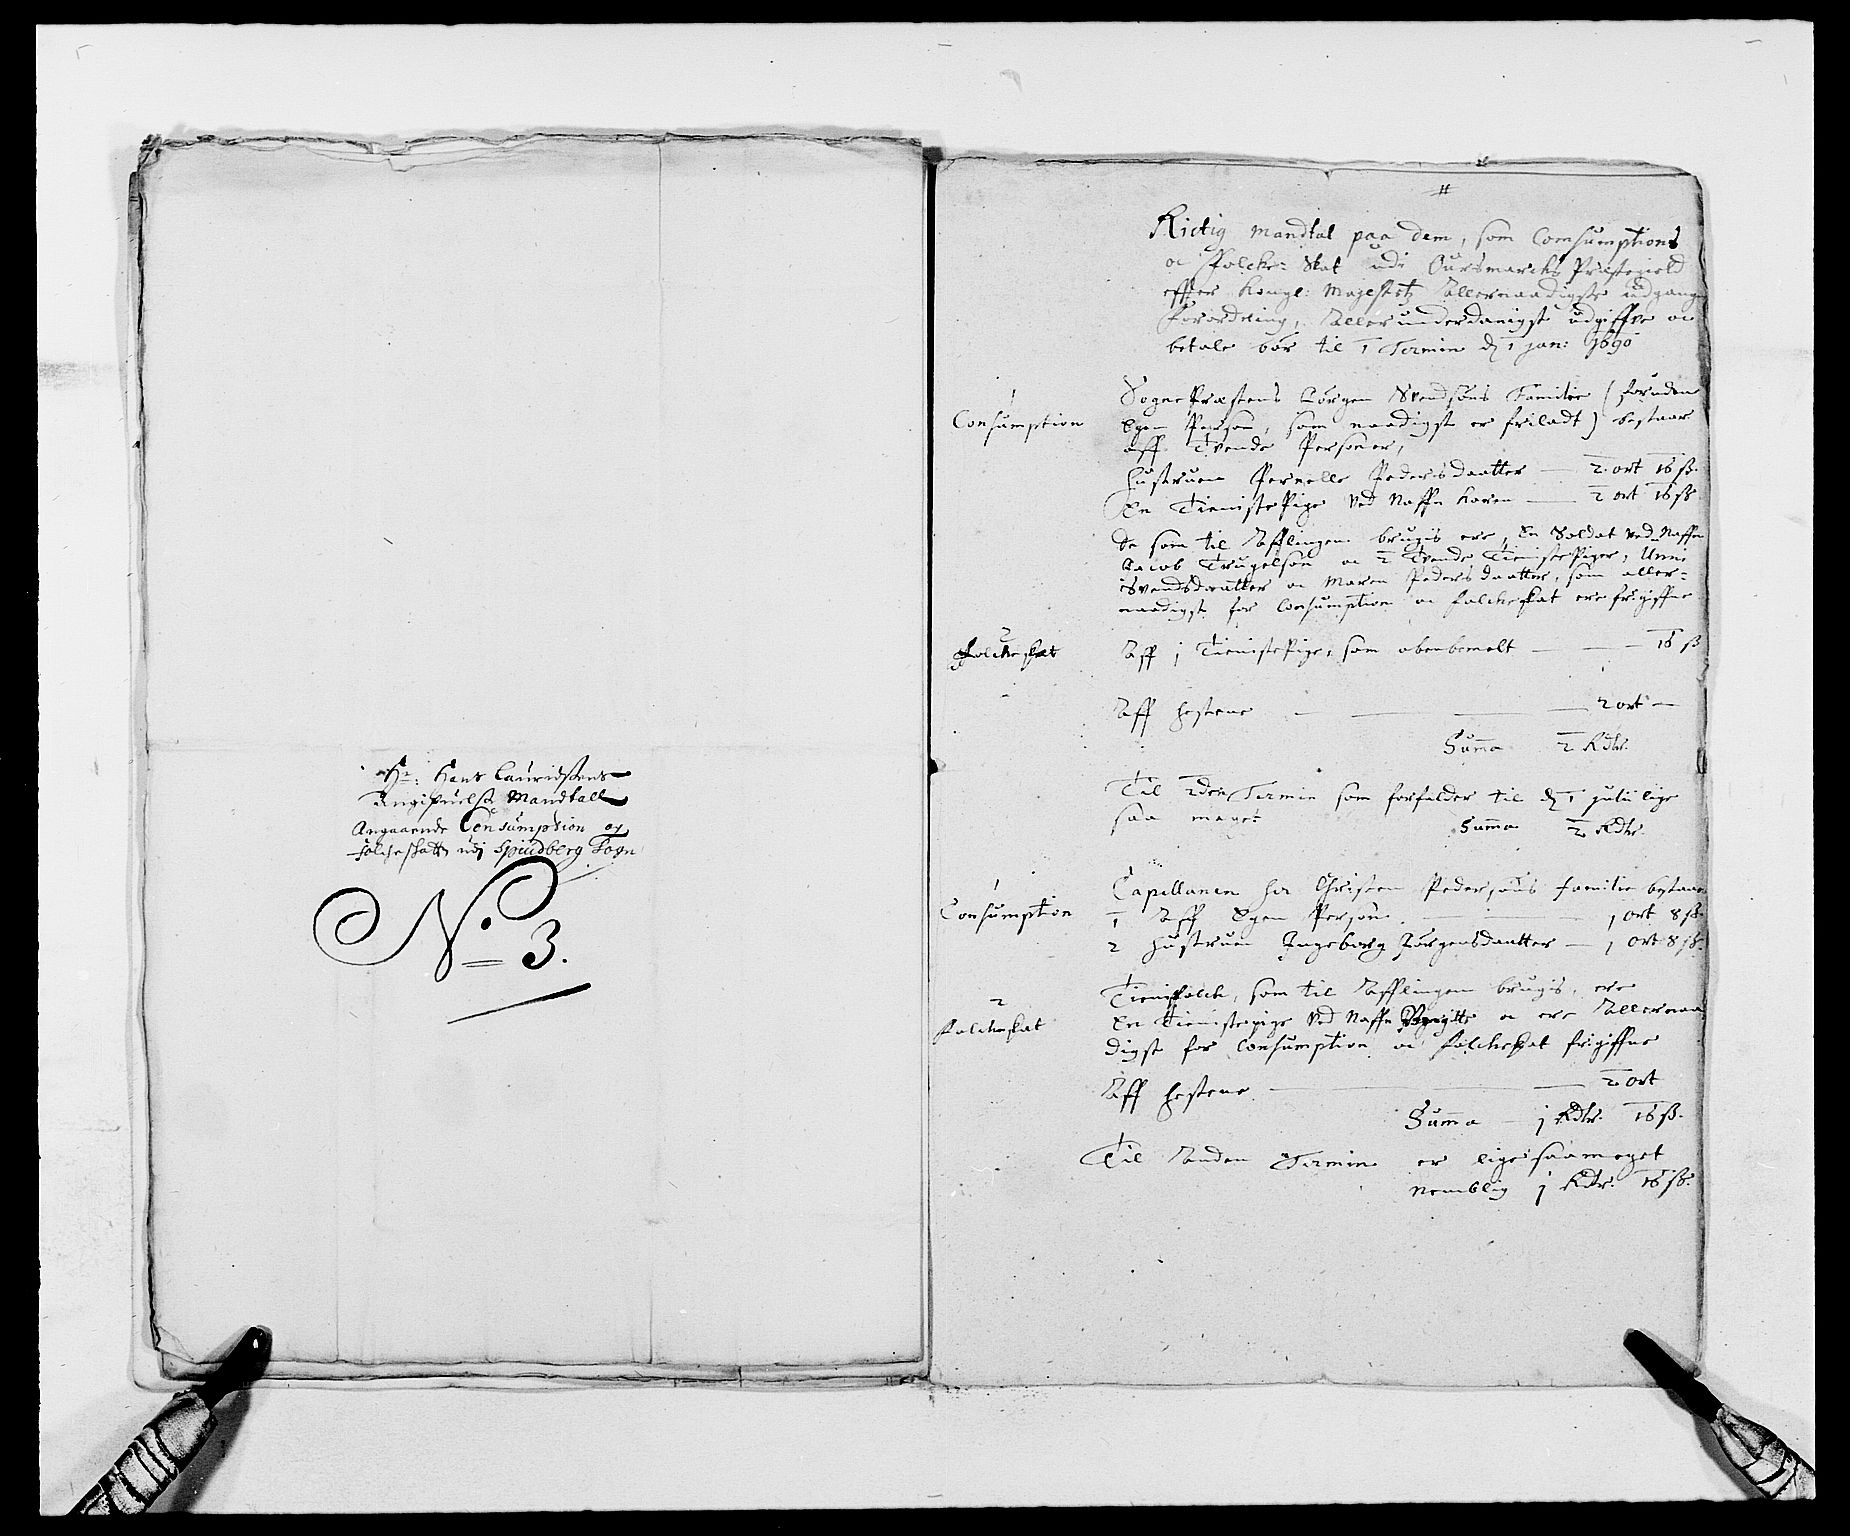 Hr: Hans Lauridsens
Angifvelse Mandtall
Angaaende Consumption og
folcheskatt udj Spindberg Sogn
No 3.
Rictig Mandtal paa dem, som Consumptions
oc Folcke-Skat udi Oursmarcks Præstegield
effter Kongl: Mayestetz Allernaadigste udgangne
Forordning, Allerunderdanigst udgiffve oc
betale bør til 1 Termin d 1 Jan: 1690
1
Consumption
SognePræstens Jørgen Svendsøns Familie (foruden
Egen Person, som naadigst er friladt) bestaar
aff Tvende Personer,
Hustruen Pernelle Pedersdaatter — 2 ort 16 ß.
En TienistePige ved Naffn Karen — 2 ort 16 ß
De som til Afflingen brugis ere, En Soldat ved Naffn
Jacob Truelsøn oc 2 Tvende TienistePiger,
Svendsdaatter oc Maren Pedersdaatter, som aller-
naadigst for Consumption oc folckeskat ere frigiffne
2
Folckeskat
Aff j TienistePige, som obenbemelt — — — 16 ß
Aff Hestene — — — — 2 ort —
Summa 2 Rdlr.
Til 2den Termin som forfalder til d 1 Julii lige
saa meget
Summa 2 Rdlr.
1
Consumption
Capellanen hr Christen Pedersøns familie bestaar
1 Aff Egen Person — — — 1 ort 8 ß.
2 Hustruen Ingeborg Jørgensdaatter — 1 ort 8 ß.
2
Folckeskat
Tienistfolck, som til Afflingen brugis, ere
En Tienistepige ved Naffn Birgitte oc ere Allernaa
digst for Consumption oc folckeskat frigiffne
Aff Hestene — — — 2 ort
Summa — j Rdlr. 16 ß.
Til Anden Termin er ligesaameget
nemblig j Rdlr. 16 ß.